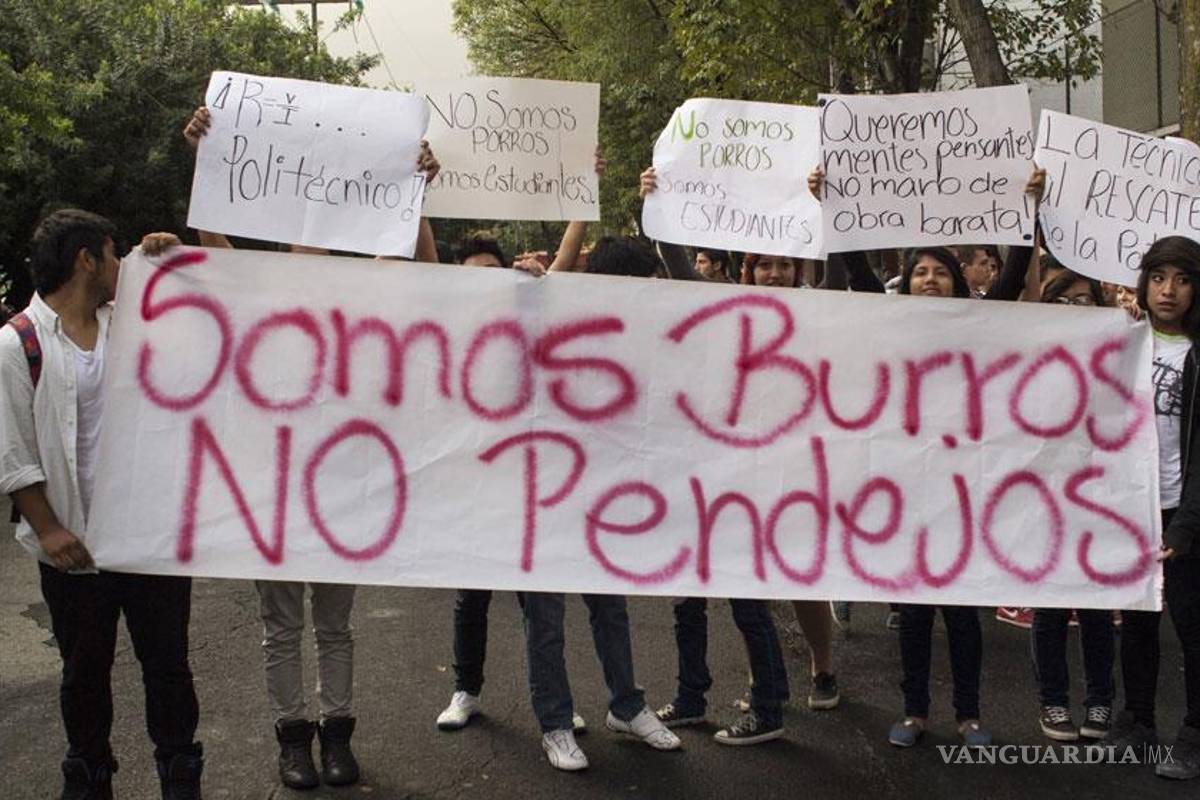 ¡R=V/I...
Politécnico!
NO Somos
PORROS
Somos Estudiantes.
No somos
PORROS
Somos
ESTUDIANTES
Queremos
mentes pensantes
NO mano de
obra barata!
La Técnica
al RESCATE
de la
Somos Burros
NO Pendejos
VANGUARDIA|MX